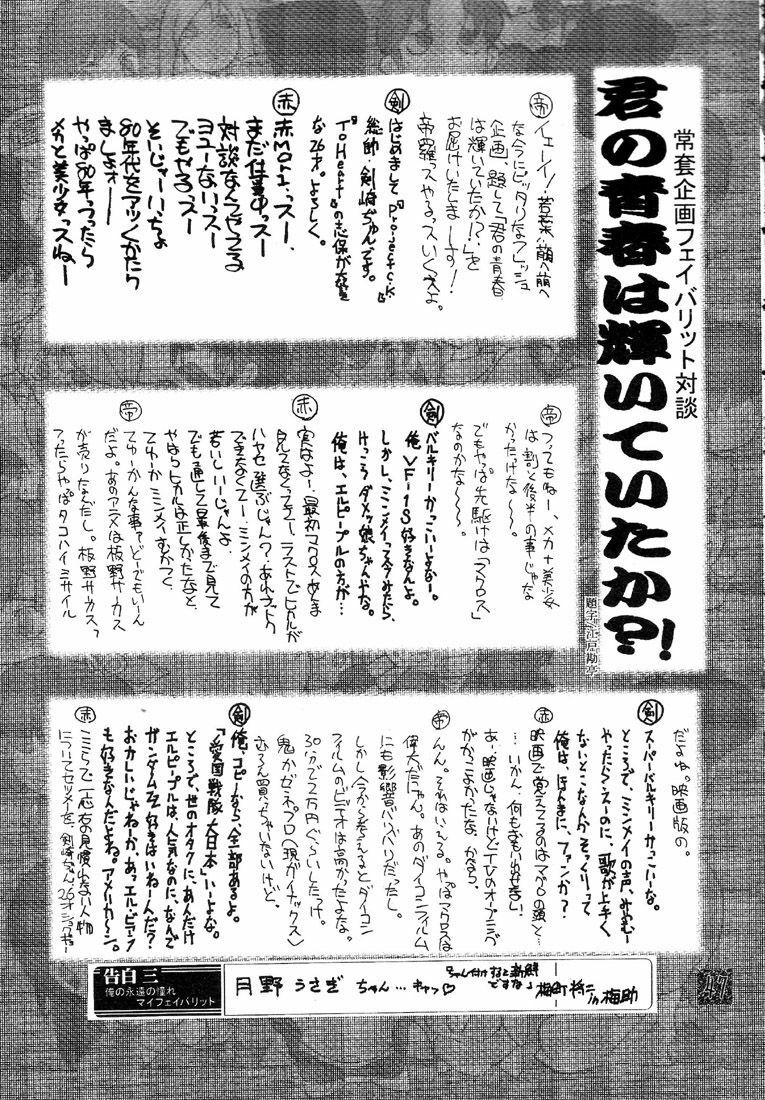 常套企画フェイバリット対談
君の青春は輝いていたか?!
題字:江戸勘亭
帝
イェーイ!若葉・萌え萌え
な今にピッタリなフレッシュ
企画・題して「君の青春
は輝いていたか!?」を
お届けいたしまーす!
帝羅ッスやるっスいくスよ。
剣
はじめまして『Projectc.k』
総帥・剣崎ぢゅんです。
『ToHeart』の志保が大好
な26才。よろしく。
赤
赤MoRiっスー、
まだ仕事中っスー
対談なんてやってる
ヨユーないっスー
でもやるっスー
そいじゃーいっちょ
80年代をアツくかたり
ましょオー
やっぱ80年っつったら
メカと美少女っスねー
帝
つってもねー、メカ+美少女
は割と後半の事じゃな
かったけな〜〜。
でもやっぱ先駆けは「マクロス」
なのかな〜〜〜。
剣
バルキリーかっこいーよなー。
俺VF-1S好きなんよ。
しかし、ミンメイって今みたら、
けっこうダメッ娘ちゃんやな。
俺は、エルピープルの方が…
赤
実はよー、最初マクロスあんま
見てなくってよー、ラストでヒカルが
ハヤセ選ぶじゃん?あれナットク
できなくてー、ミンメイの方が
若いしいーじゃんよ、
でも通して最後まで見て
やはりヒカルは正しかったなと、
てゆーかミンメイ、むかつく、
帝
てゆーかんな事ァどーでもいーん
だよ。あのアニメは板野サーカス
が売りなんだし。板野サーカス
つったらやっぱタコハイミサイル
だよね。映画版の。
剣
スーパーバルキリーかっこいーな。
ところで、ミンメイの声、みやむー
やったらえーのに、歌が上手く
ないとこなんかそっくりって
俺は、ほんまに、ファンか?
赤
映画で覚えてるのはマクロスの頭と…
…いかん、何もおもい出せない!
あー、映画じゃないけどTVのオープニングが
かっこよかったな。からー
帝
んん。それはいえる。やっぱマクロスは
偉大だにゃん。あのダイコンフィルム
にも影響バリバリだったし。
しかし今から考えるとダイコン
フィルムのビデオは高かったよなぁ。
30分で2万円ぐらいしたっけ。
鬼かゼネプロ(現ガイナックス)
もちろん買っちゃいないけど。
剣
俺、コピーなら、全部あるよ。
「愛国戦隊大日本」いーよな。
ところで、世のオタクに、あんだけ
エルピープルは、人気なのに、なんで
ガンダムZZ好きはいねーんだ?
おかしいじゃねーか。あっエルピープルク
も好きなんだよね。アメリカ〜ン。
赤
ここらで一応お見慣れない人物
について
告白 三
俺の永遠の憧れ
マイフェイバリット
月野うさぎちゃん…キャッ♡
ちゃん付けすると新鮮
ですな♪